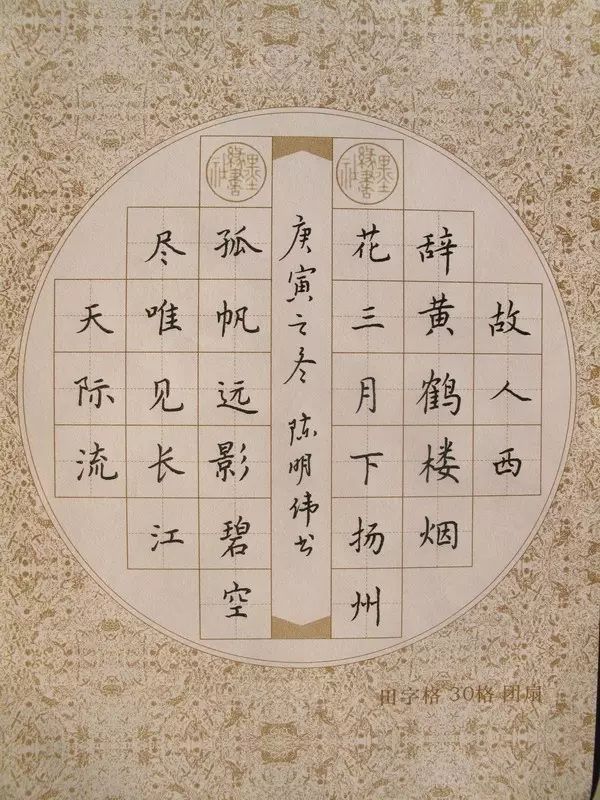 故人西
辞黄鹤楼烟
花三月下扬州
庚寅之冬 陈明伟书
孤帆远影碧空
尽唯见长江
天际流
田字格 30格 团扇